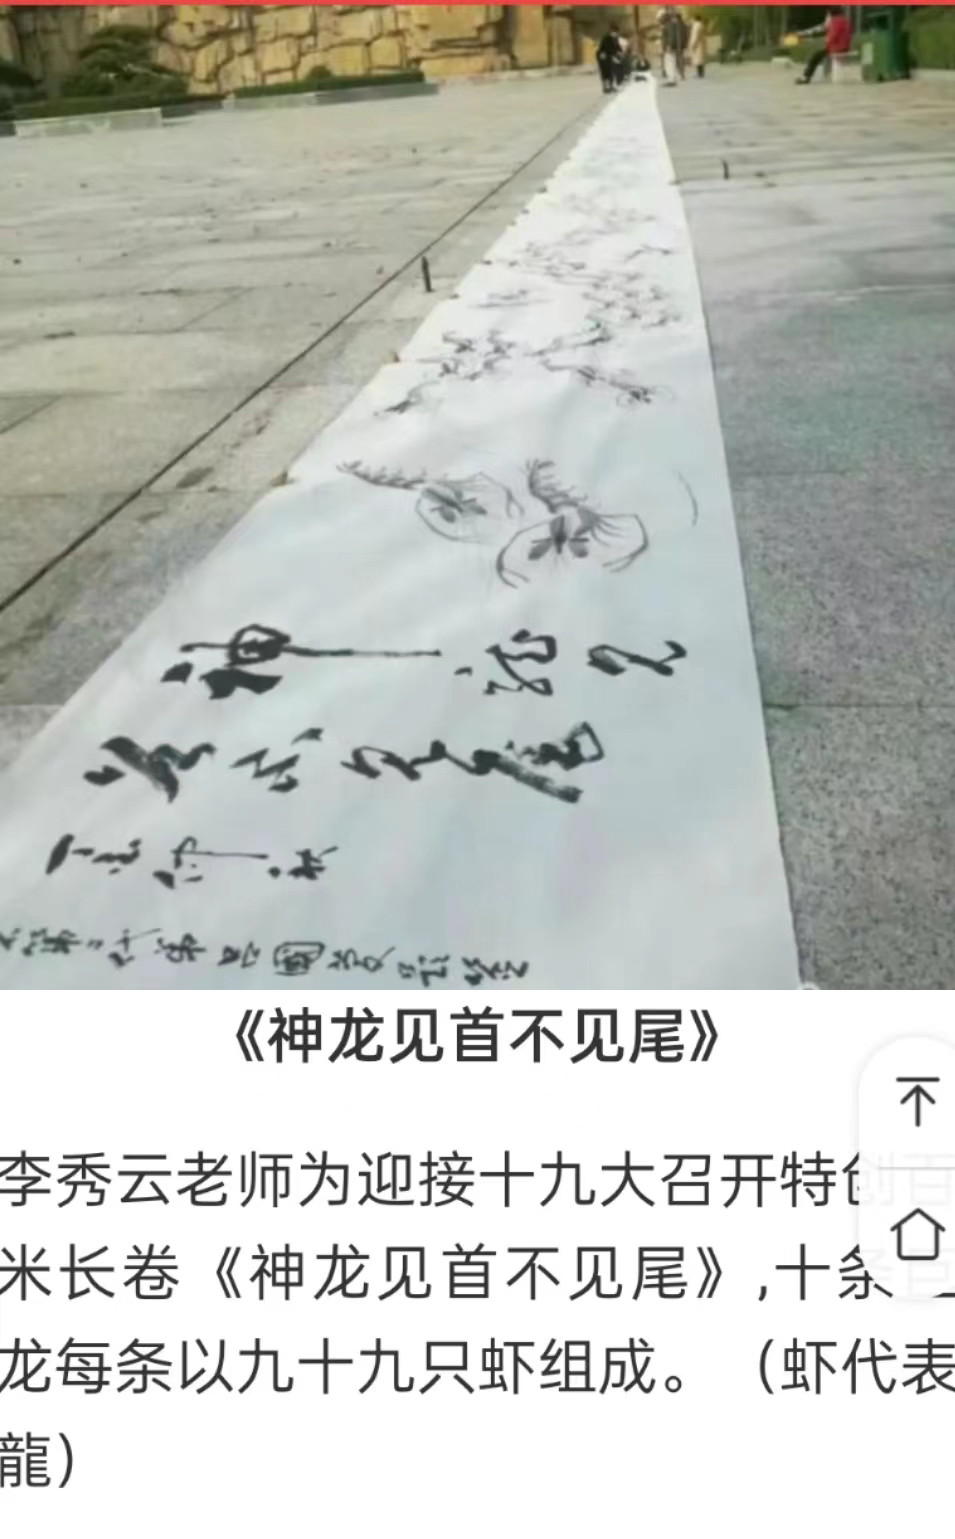 神龙见
首不见尾
《神龙见首不见尾》
李秀云老师为迎接十九大召开特创百
米长卷《神龙见首不见尾》,十条巨
龙每条以九十九只虾组成。（虾代表
龍）